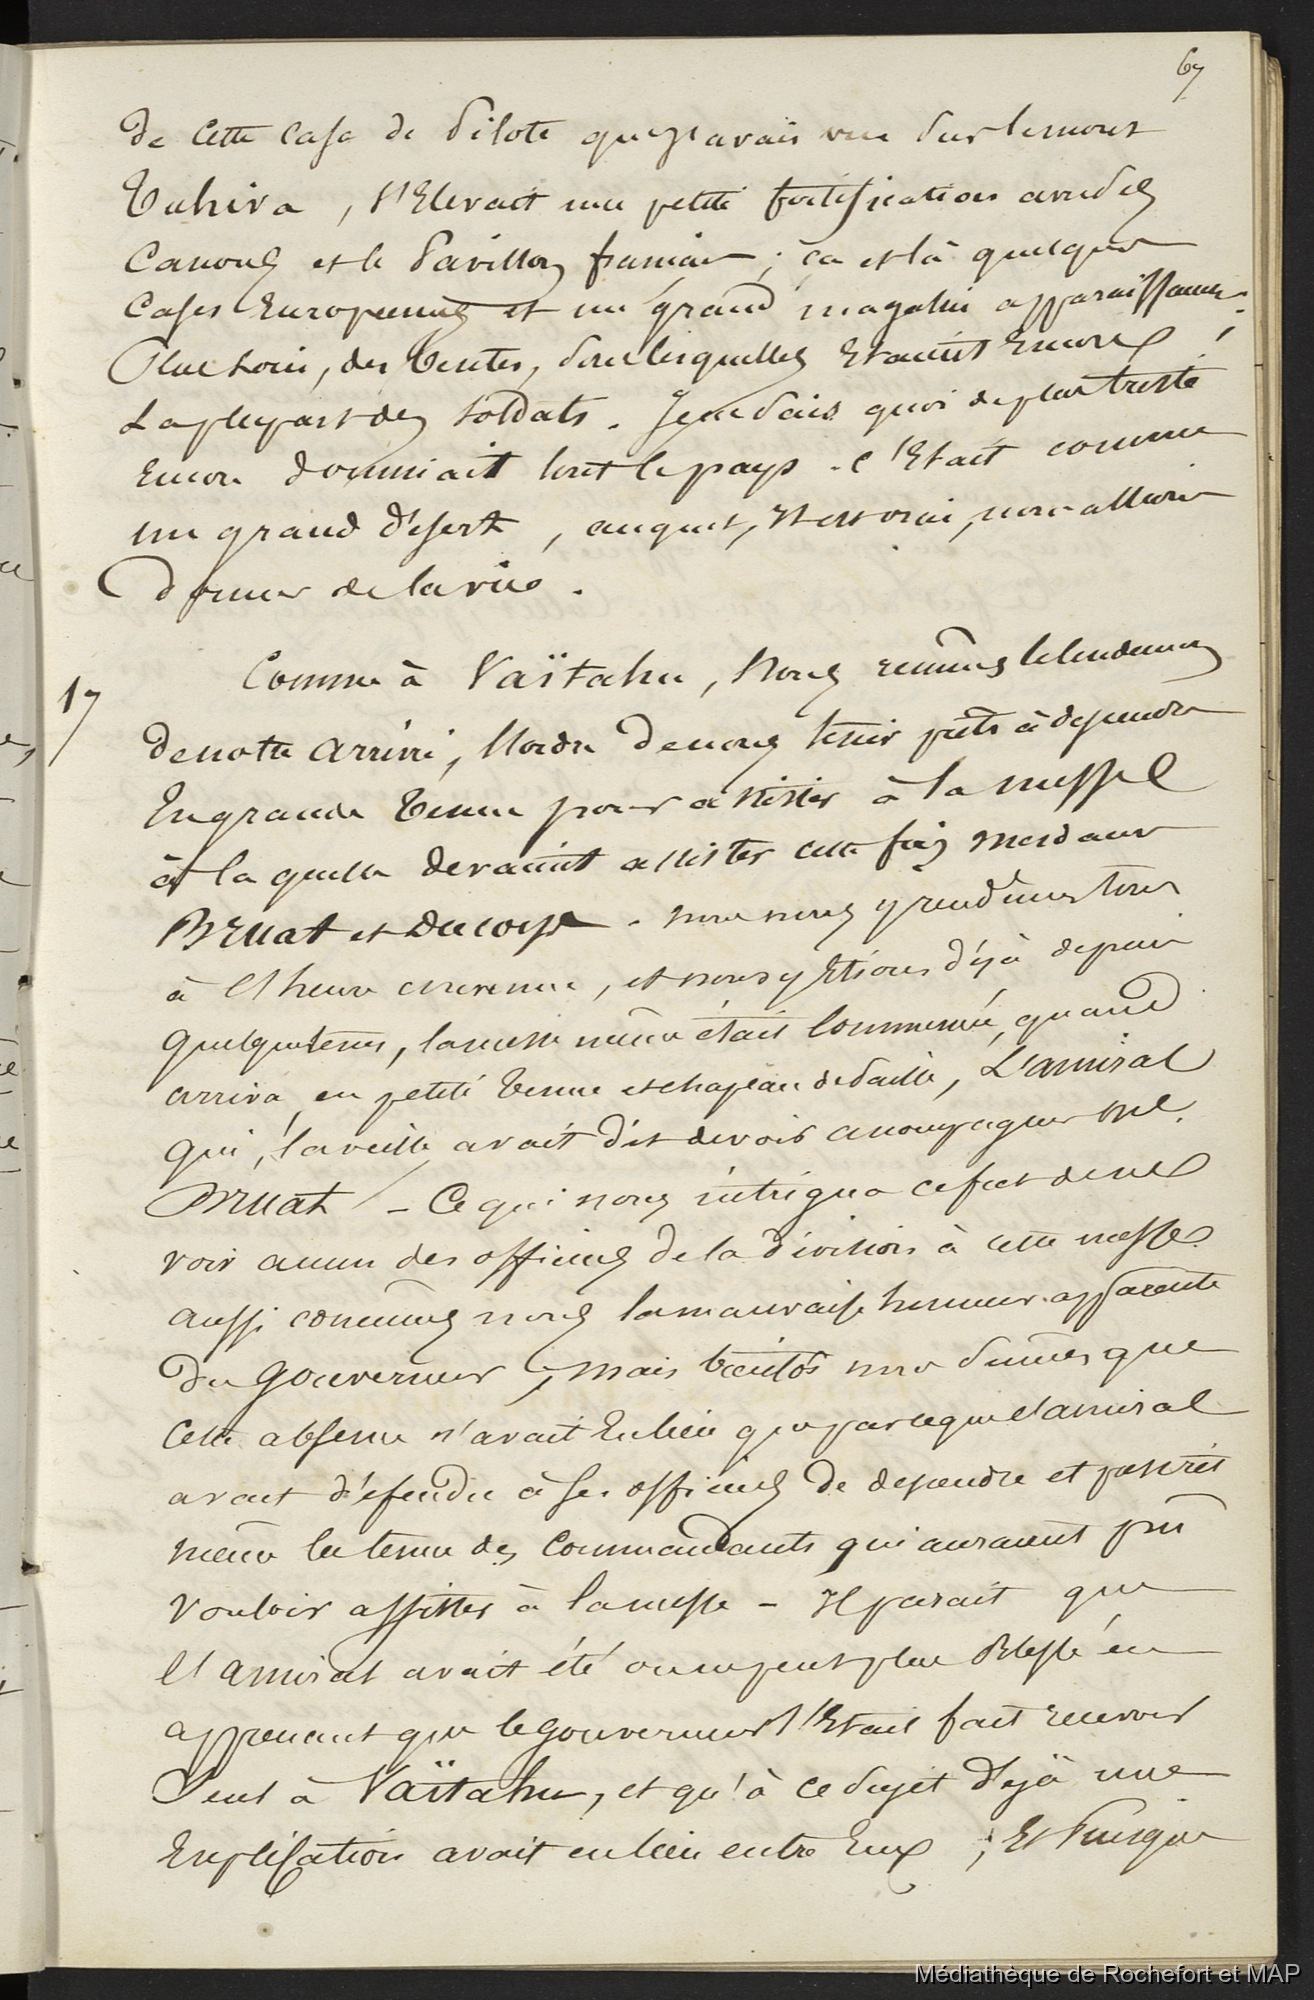 67
de cette case de Pilote que j'avais vue sur le mont
Tuhiva, s'Elevait une petite fortification avec des
Canons et le Pavillon français ; ça et là quelques
Cases Européennes et un grand magasin apparaissaient.
Plus loin, des tentes, sous lesquelles Etaient Encore
La plupart des soldats. Je ne sais quoi de plus triste
Encore dominait tout le pays. c'Etait comme
un grand désert, auquel, il est vrai, nous allions
donner de la vie.
17
Comme à Vaïtahu, Nous reçumes le lendemain
de notre arrivée, l'ordre de nous tenir prêts à descendre
En grande tenue pour assister à la messe
à la quelle devaient assister cette fois Mesdames
Bruat et . nous nous y rendîmes tous
à l'heure convenue, et nous y Etions déjà depuis
quelque tems, la messe même était commencée, quand
arriva, en petite tenue et chapeau de paille, L'amiral
qui, la veille avait dit devoir accompagner Me.
Bruat - Ce qui nous intrigua ce fut de ne
voir aucun des officiers de la division à cette messe.
aussi conçumes nous la mauvaise humeur apparente
du gouverneur ; mais bientôt nous sumes que
Cette absence n'avait Eu lieu que parceque l'amiral
avait défendu à ses officiers de descendre et
même la tenue des Commandants qui auraient pu
Vouloir assister à la messe - Il parait que
l'amiral avait été on ne peut plus Blessé en
apprenant que le gouverneur s'Etait fait recevoir
Seul à Vaïtahu, et qu'à ce sujet déjà une
Explication avait eu lieu entre Eux ; Et Puisque
Médiathèque de Rochefort et MAP